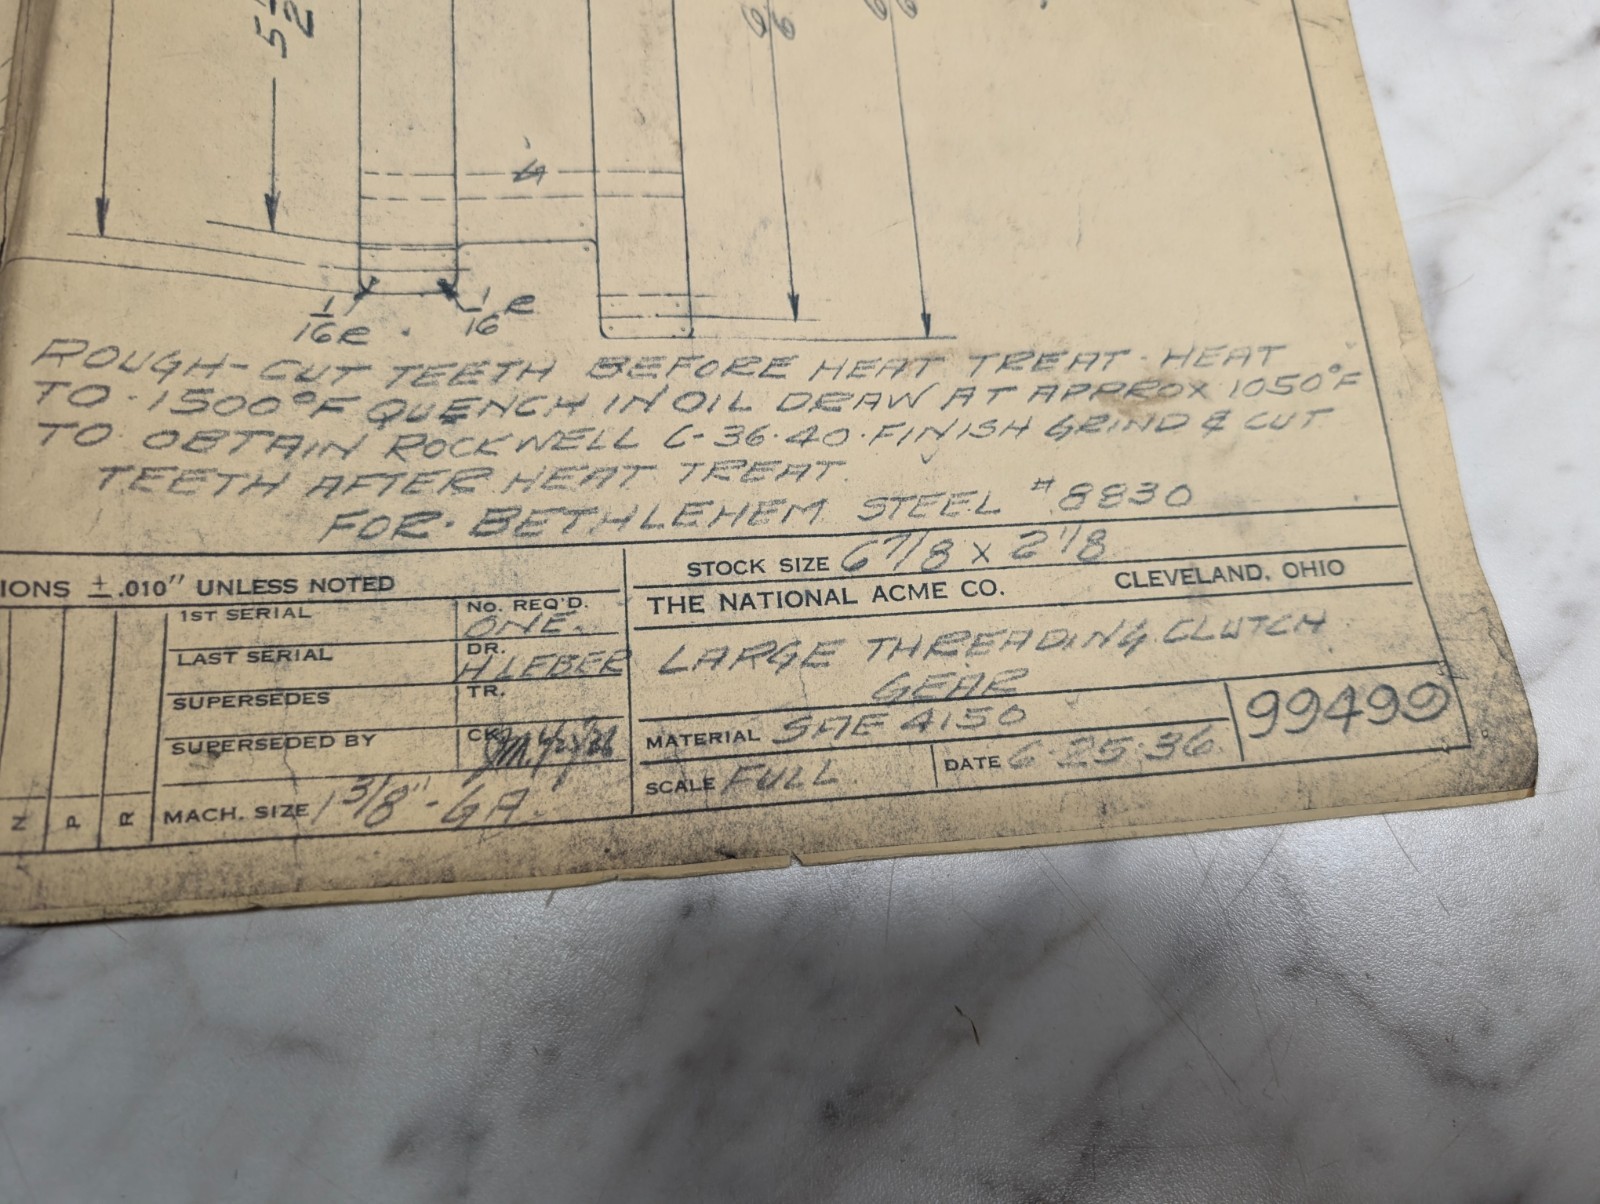 5 1/2
1/16 R
1/16 R
ROUGH-CUT TEETH BEFORE HEAT TREAT. HEAT
TO 1500°F QUENCH IN OIL DRAW AT APPROX 1050°F
TO OBTAIN ROCKWELL C-36-40. FINISH GRIND & CUT
TEETH AFTER HEAT TREAT.
FOR BETHLEHEM STEEL #8830
IONS ± .010" UNLESS NOTED
STOCK SIZE 6 7/8 X 2 1/8
THE NATIONAL ACME CO. CLEVELAND, OHIO
1ST SERIAL
NO. REQ'D. ONE.
LAST SERIAL
DR. H LEBER
SUPERSEDES
TR.
SUPERSEDED BY
CK.
LARGE THREADING CLUTCH
GEAR
MATERIAL SAE 4150
99499
SCALE FULL
DATE 6-25-36
N P R
MACH. SIZE 1 3/8" - GA.